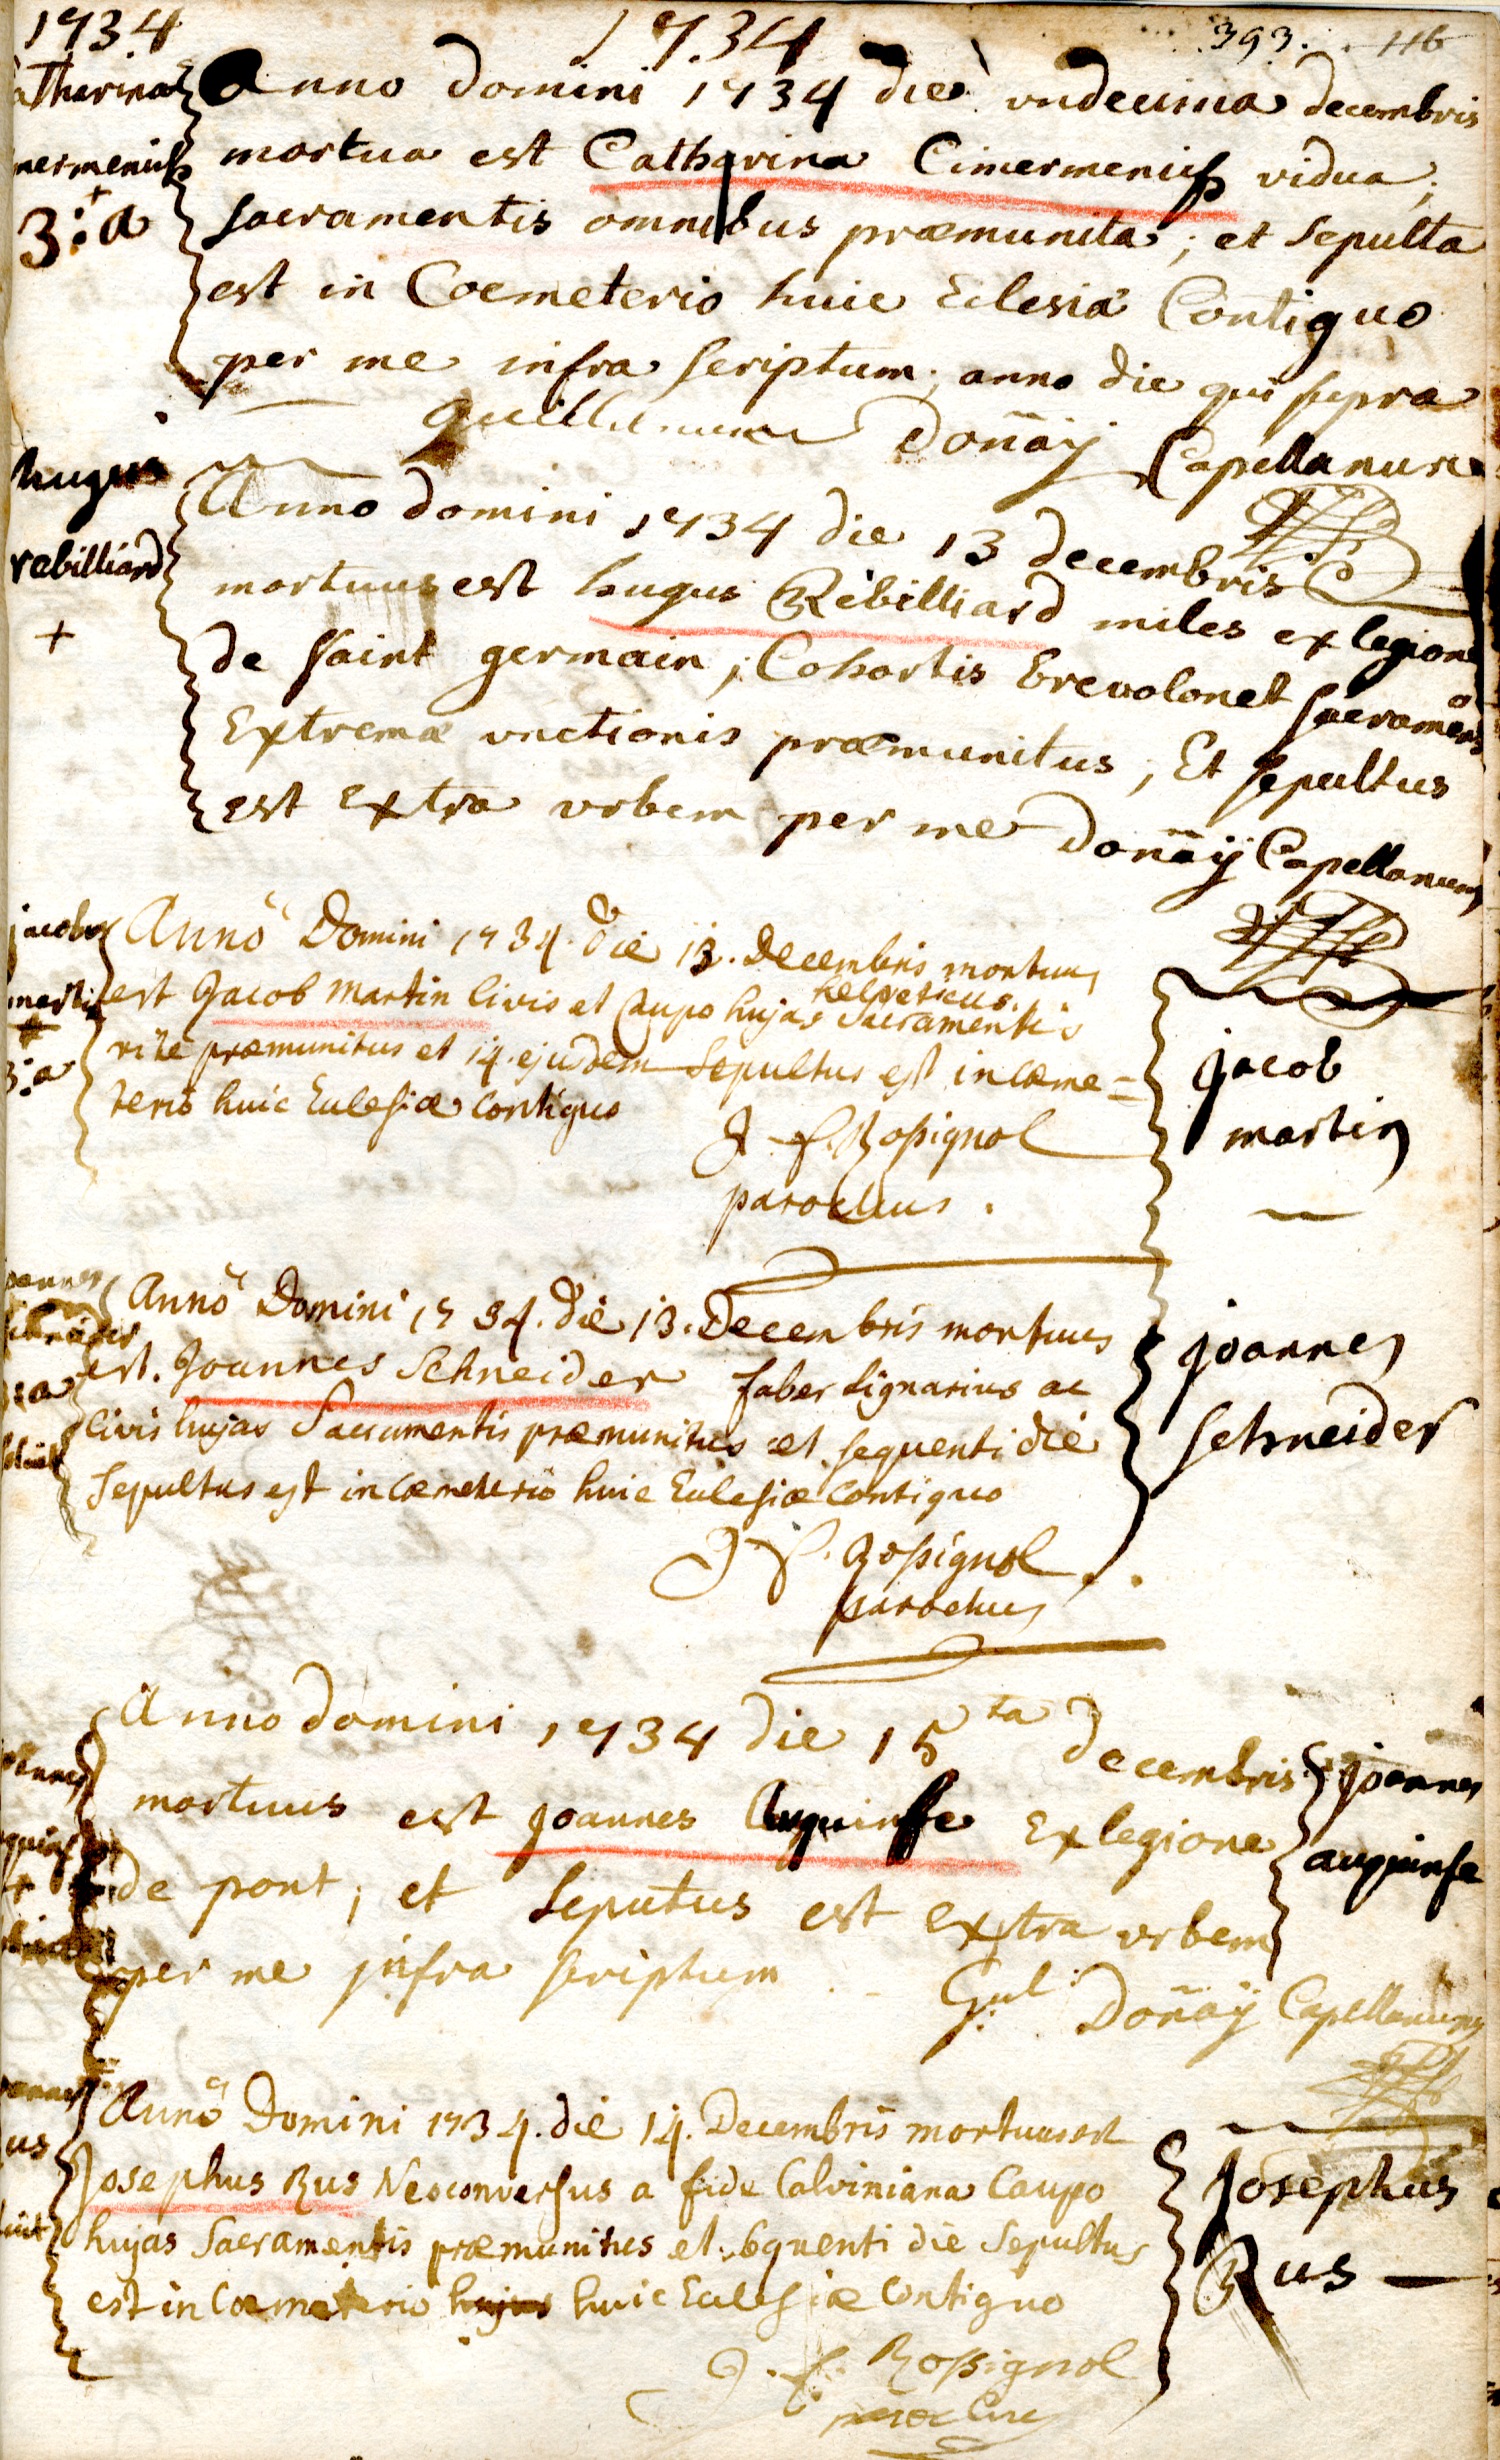 1734
1734
393. 116
Anno domini 1734 die undecima decembris
mortua est Catharina Cimermenich vidua;
sacramentis omnibus præmunita; et sepulta
est in Coemeterio huic Eclesiæ Contiguo
per me infra scriptum; anno die qui supra
Donaÿ Capellanum
hugus
rebilliard
+
Anno domini 1734 die 13 decembris
mortuus est hugus Rebilliard miles ex legione
de saint germain; Cohortis Brevolonet Sacramento
Extremæ unctionis præmunitus; Et sepultus
est Extra urbem per me Donaÿ Capellanum
Anno Domini 1734. die 13. Decembris mortuus
est Jacob Martin Civis et Caupo hujas helveticus. Sacramentis
rite præmunitus et 14. ejusdem Sepultus est in Cæme=
terio huic Ecclesiæ Contiguo
J. f. Rossignol
parochus.
jacob
martin
Anno Domini 1734. die 13. Decembris mortuus
est. Joannes Schneider faber lignarius ac
Civis hujas Sacramentis præmunitus et sequenti die
Sepultus est in Cæmeterio huic Ecclesiæ Contiguo
J f. Rossignol
parochus
joannes
schneider
Anno domini 1734 die 15ta decembris
mortuus est joannes auquinse Ex legione
de pont; et seputus est extra urbem
per me jnfra scriptum
Gul: Donaÿ Capellanum
joannes
auquinse
Anno Domini 1734. die 14. Decembris mortuus est
Josephus Rus Neoconversus a fide Calviniana Caupo
hujas Sacramentis præmunitus et sequenti die Sepultus
est in Cœmeterio hujus huic Ecclesiæ Contiguo
J. f. Rossignol
parochus
Josephus
Rus